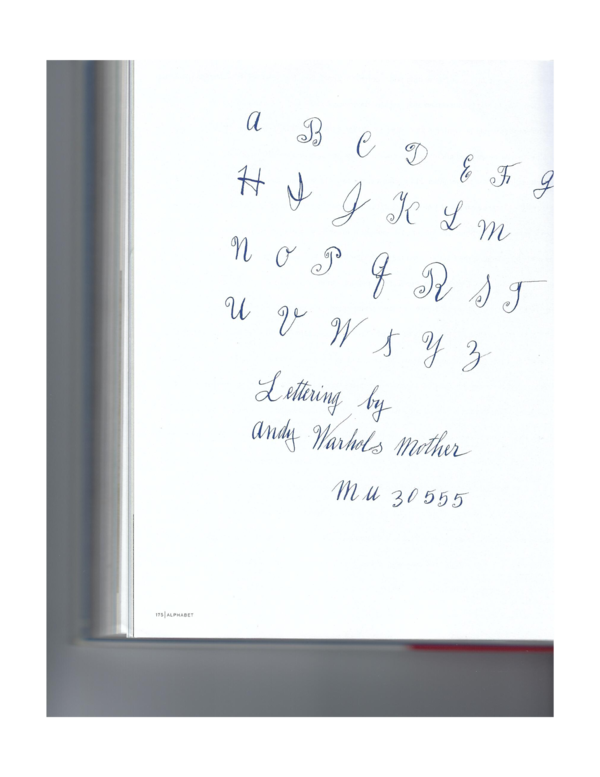 a B C D E F g
H I J K L M
N O P Q R S T
U V W S Y Z
Lettering by
andy Warhols Mother
MU 30555
175|ALPHABET